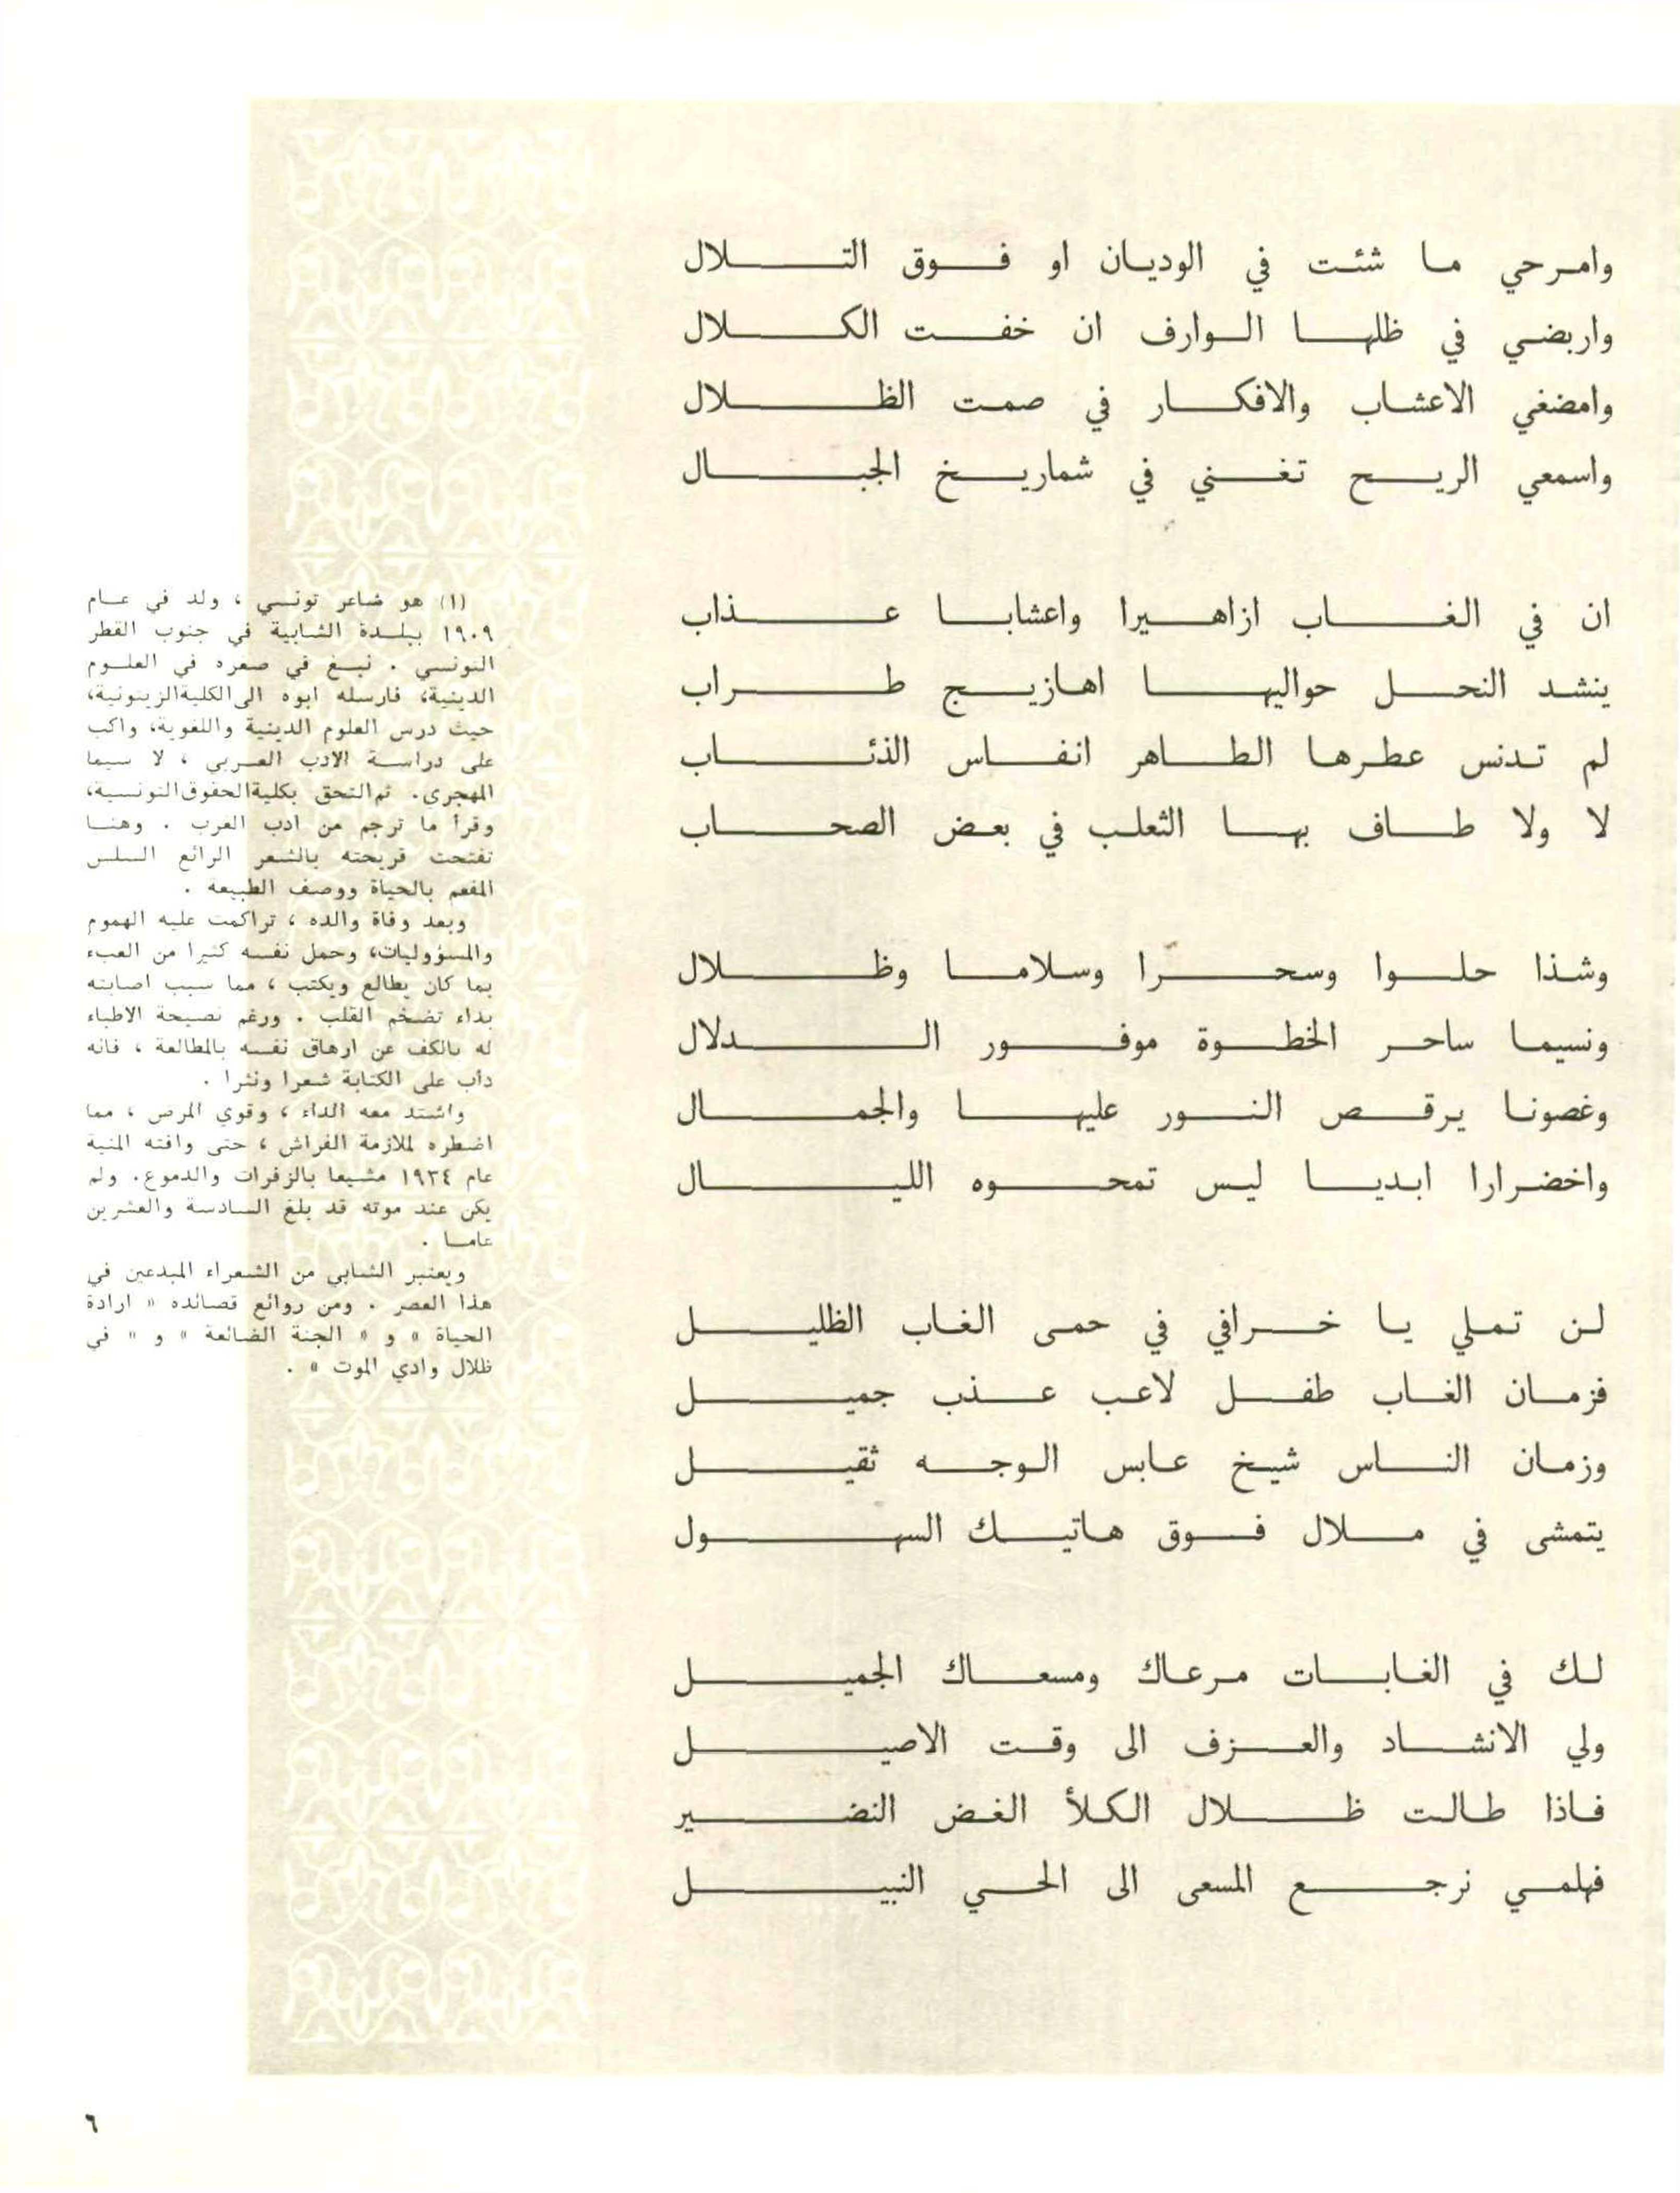 وامرحي ما شئت في الوديان او فوق التلال
واربضي في ظلها الوارف ان خفت الكلال
وامضغي الاعشاب والافكار في صمت الظلال
واسمعي الريح تغني في شماريخ الجبال
ان في الغاب ازاهيرا واعشابا عذاب
ينشد النحل حواليها اهازيج طراب
لم تدنس عطرها الطاهر انفاس الذئاب
لا ولا طاف بها الثعلب في بعض الصحاب
وشذا حلوا وسحرا وسلاما وظلال
ونسيما ساحر الخطوة موفور الدلال
وغصونا يرقص النور عليها والجمال
واخضرارا ابديا ليس تمحوه الليال
لن تملي يا خرافي في حمى الغاب الظليل
فزمان الغاب طفل لاعب عذب جميل
وزمان الناس شيخ عابس الوجه ثقيل
يتمشى في ملال فوق هاتيك السهول
لك في الغابات مرعاك ومسعاك الجميل
ولي الانشاد والعزف الى وقت الاصيل
فاذا طالت ظلال الكلأ الغض النضير
فهلمي نرجع المسعى الى الحي النبيل
(١) هو شاعر تونسي ، ولد في عام
١٩٠٩ ببلدة الشابية في جنوب القطر
التونسي . نبغ في صغره في العلوم
الدينية، فارسله ابوه الى الكلية الزيتونية،
حيث درس العلوم الدينية واللغوية، واكب
على دراسة الادب العربي ، لا سيما
المهجري. ثم التحق بكلية الحقوق التونسية،
وقرأ ما ترجم من ادب الغرب . وهنا
تفتحت قريحته بالشعر الرائع السلس
المفعم بالحياة ووصف الطبيعة .
وبعد وفاة والده ، تراكمت عليه الهموم
والمسؤوليات، وحمل نفسه كثيرا من العبء
بما كان يطالع ويكتب ، مما سبب اصابته
بداء تضخم القلب . ورغم نصيحة الاطباء
له بالكف عن ارهاق نفسه بالمطالعة ، فانه
دأب على الكتابة شعرا ونثرا .
واشتد معه الداء ، وقوي المرض ، مما
اضطره لملازمة الفراش ، حتى وافته المنية
عام ١٩٣٤ مشيعا بالزفرات والدموع. ولم
يكن عند موته قد بلغ السادسة والعشرين
عاما .
ويعتبر الشابي من الشعراء المبدعين في
هذا العصر . ومن روائع قصائده « ارادة
الحياة » و « الجنة الضائعة » و « في
ظلال وادي الموت » .
٦